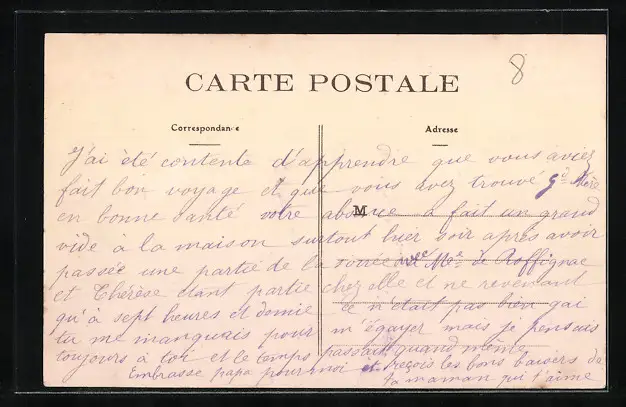 8
CARTE POSTALE
Correspondance
Adresse
M
J'ai été contente d'apprendre que vous aviez
fait bon voyage et que vous avez trouvé gd Mère
en bonne santé votre absence a fait un grand
vide à la maison surtout hier soir après avoir
passée une partie de la soirée avec Me de Roffignac
et Thérèse étant partie chez elle et ne revenant
qu'à sept heures et demie ce n'était pas bien gai
tu me manquais pour m'égayer mais je pensais
toujours à toi et le temps passait quand même
Embrasse papa pour moi et reçois les bons baisers de
ta maman qui t'aime